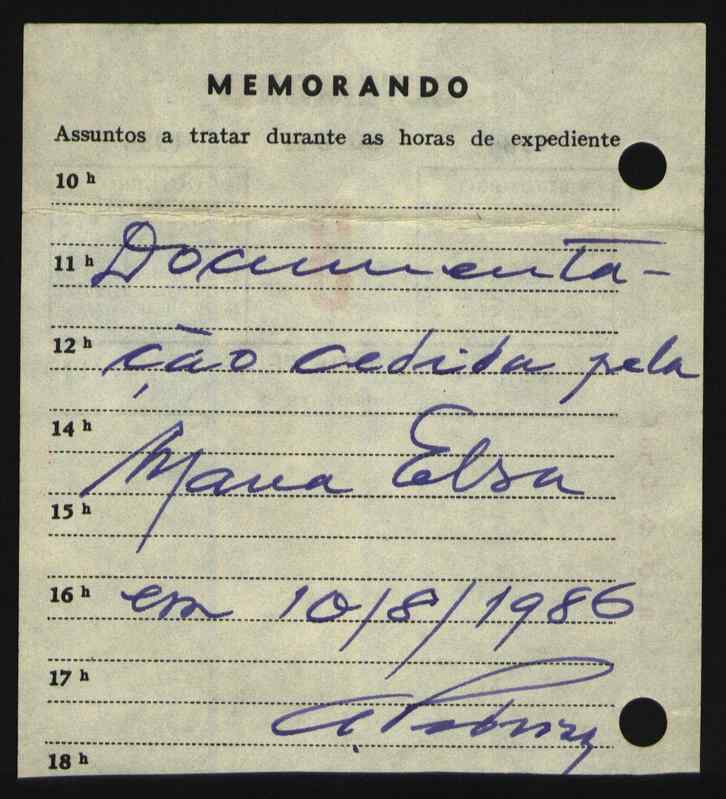 MEMORANDO
Assuntos a tratar durante as horas de expediente
10 h
11 h Documenta-
12 h ção cedida pela
14 h
Maria Elsa
15 h
16 h em 10/8/1986
17 h
18 h